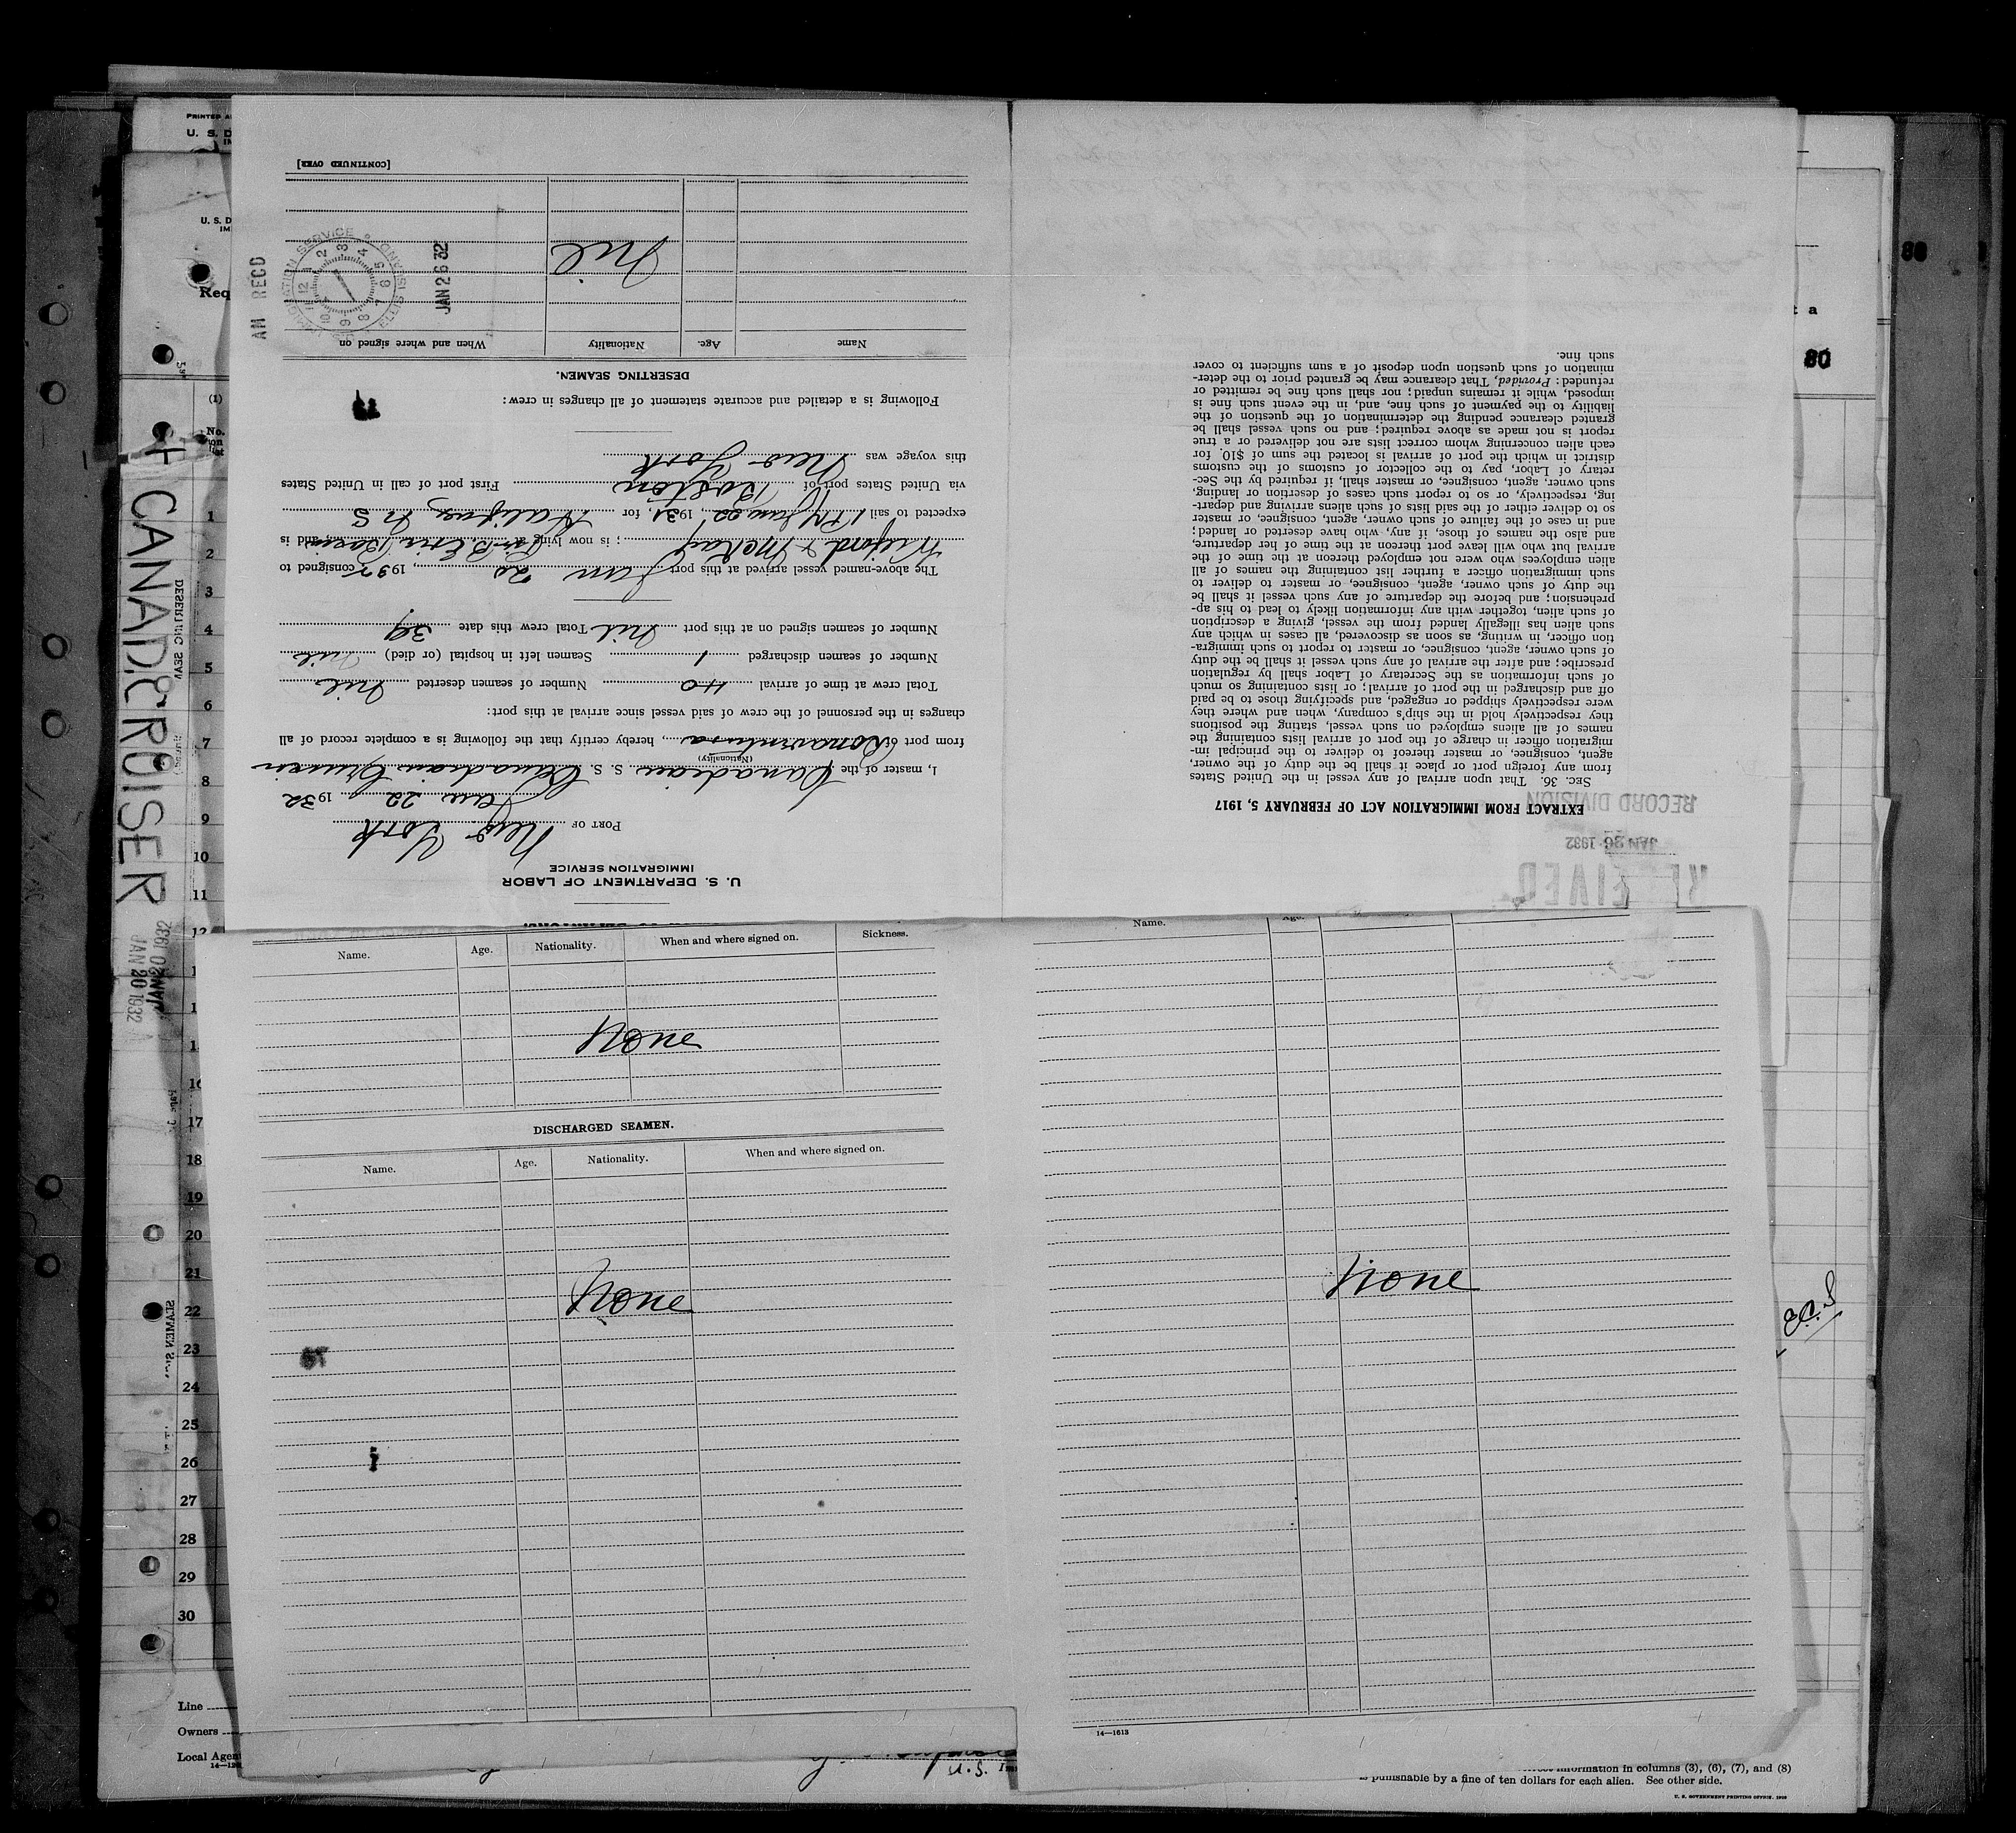 U. S. DEPARTMENT OF LABOR
IMMIGRATION SERVICE
PORT OF New York
Jan 22, 1932
I, master of the Canadian S. S. Canadian Cruiser
(Nationality)
from port of Bonaventura, hereby certify that the following is a complete record of all
changes in the personnel of the crew of said vessel since arrival at this port:
Total crew at time of arrival 40 Number of seamen deserted Nil
Number of seamen discharged 1 Seamen left in hospital (or died) Nil
Number of seamen signed on at this port Nil Total crew this date 39
The above-named vessel arrived at this port Jan 20, 1932, consigned to
McKay; is now lying at Erie Basin, and is
expected to sail 1 PM Jan 22, 1931, for Halifax N S
via United States port of Boston First port of call in United States
this voyage was New York
Following is a detailed and accurate statement of all changes in crew:
DESERTING SEAMEN.
Name Age. Nationality When and where signed on
Nil
[CONTINUED OVER]
AM RECD
IMMIGRATION SERVICE ELLIS ISLAND
12 1 2 3 4 5 6 7 8 9 10 11
JAN 26 32
EXTRACT FROM IMMIGRATION ACT OF FEBRUARY 5, 1917
SEC. 36. That upon arrival of any vessel in the United States
from any foreign port or place it shall be the duty of the owner,
agent, consignee, or master thereof to deliver to the principal im-
migration officer in charge of the port of arrival lists containing the
names of all aliens employed on such vessel, stating the positions
they respectively hold in the ship's company, when and where they
were respectively shipped or engaged, and specifying those to be paid
off and discharged in the port of arrival; or lists containing so much
of such information as the Secretary of Labor shall by regulation
prescribe; and after the arrival of any such vessel it shall be the duty
of such owner, agent, consignee, or master to report to such immigra-
tion officer, in writing, as soon as discovered, all cases in which any
such alien has illegally landed from the vessel, giving a description
of such alien, together with any information likely to lead to his ap-
prehension; and before the departure of any such vessel it shall be
the duty of such owner, agent, consignee, or master to deliver to
such immigration officer a further list containing the names of all
alien employees who were not employed thereon at the time of the
arrival but who will leave port thereon at the time of her departure,
and also the names of those, if any, who have deserted or landed;
and in case of the failure of such owner, agent, consignee, or master
so to deliver either of the said lists of such aliens arriving and depart-
ing, respectively, or so to report such cases of desertion or landing,
such owner, agent, consignee, or master shall, if required by the Sec-
retary of Labor, pay to the collector of customs of the customs
district in which the port of arrival is located the sum of $10. for
each alien concerning whom correct lists are not delivered or a true
report is not made as above required; and no such vessel shall be
granted clearance pending the determination of the question of the
liability to the payment of such fine, and, in the event such fine is
imposed, while it remains unpaid; nor shall such fine be remitted or
refunded: Provided, That clearance may be granted prior to the deter-
mination of such question upon deposit of a sum sufficient to cover
such fine.
RECEIVED
JAN 26 1932
RECORD DIVISION
CANAD. CRUISER
JAN 20 1932
JAN 20 1932
Name. Age. Nationality. When and where signed on. Sickness.
None
DISCHARGED SEAMEN.
Name. Age. Nationality. When and where signed on.
None
Name. Age.
None
14—1613
80
(1)
No.
on
list
1
2
3
4
5
6
7
8
9
10
11
12
16
17
18
19
20
21
22
23
24
25
26
27
28
29
30
Line
Owners
Local Agen
U.S.
information in columns (3), (6), (7), and (8)
is punishable by a fine of ten dollars for each alien. See other side.
U. S. GOVERNMENT PRINTING OFFICE